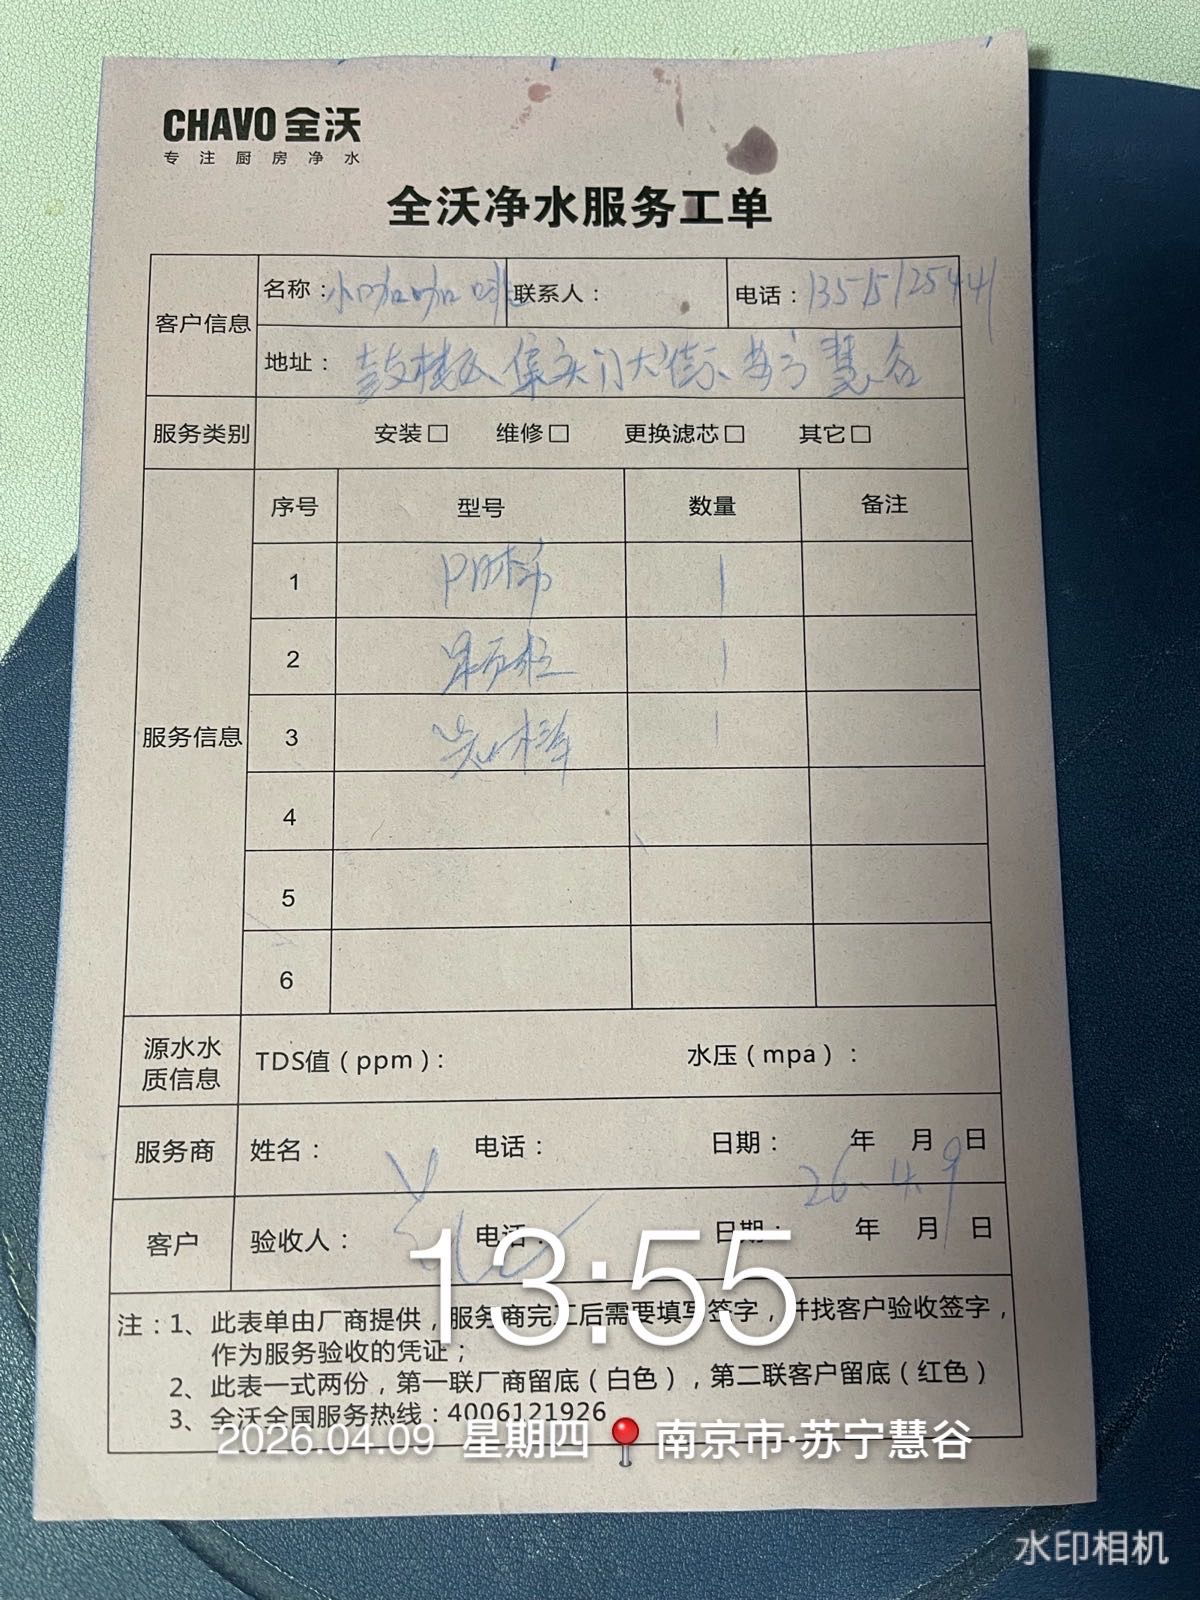 CHAVO 全沃
专注厨房净水
全沃净水服务工单
客户信息
名称：小咖咖啡 联系人： 电话：13515125441
地址：鼓楼区 大街 苏宁慧谷
服务类别 安装□ 维修□ 更换滤芯□ 其它□
服务信息
序号 型号 数量 备注
1 PP棉 1
2 颗粒 1
3 1
4
5
6
源水水质信息 TDS值（ppm）： 水压（mpa）：
服务商 姓名： 电话： 日期： 年 月 日
26.4.9
客户 验收人： 电话： 日期： 年 月 日
注：1、此表单由厂商提供，服务商完工后需要填写签字，并找客户验收签字，
作为服务验收的凭证；
2、此表一式两份，第一联厂商留底（白色），第二联客户留底（红色）
3、全沃全国服务热线：4006121926
13:55
2026.04.09 星期四 南京市·苏宁慧谷
水印相机